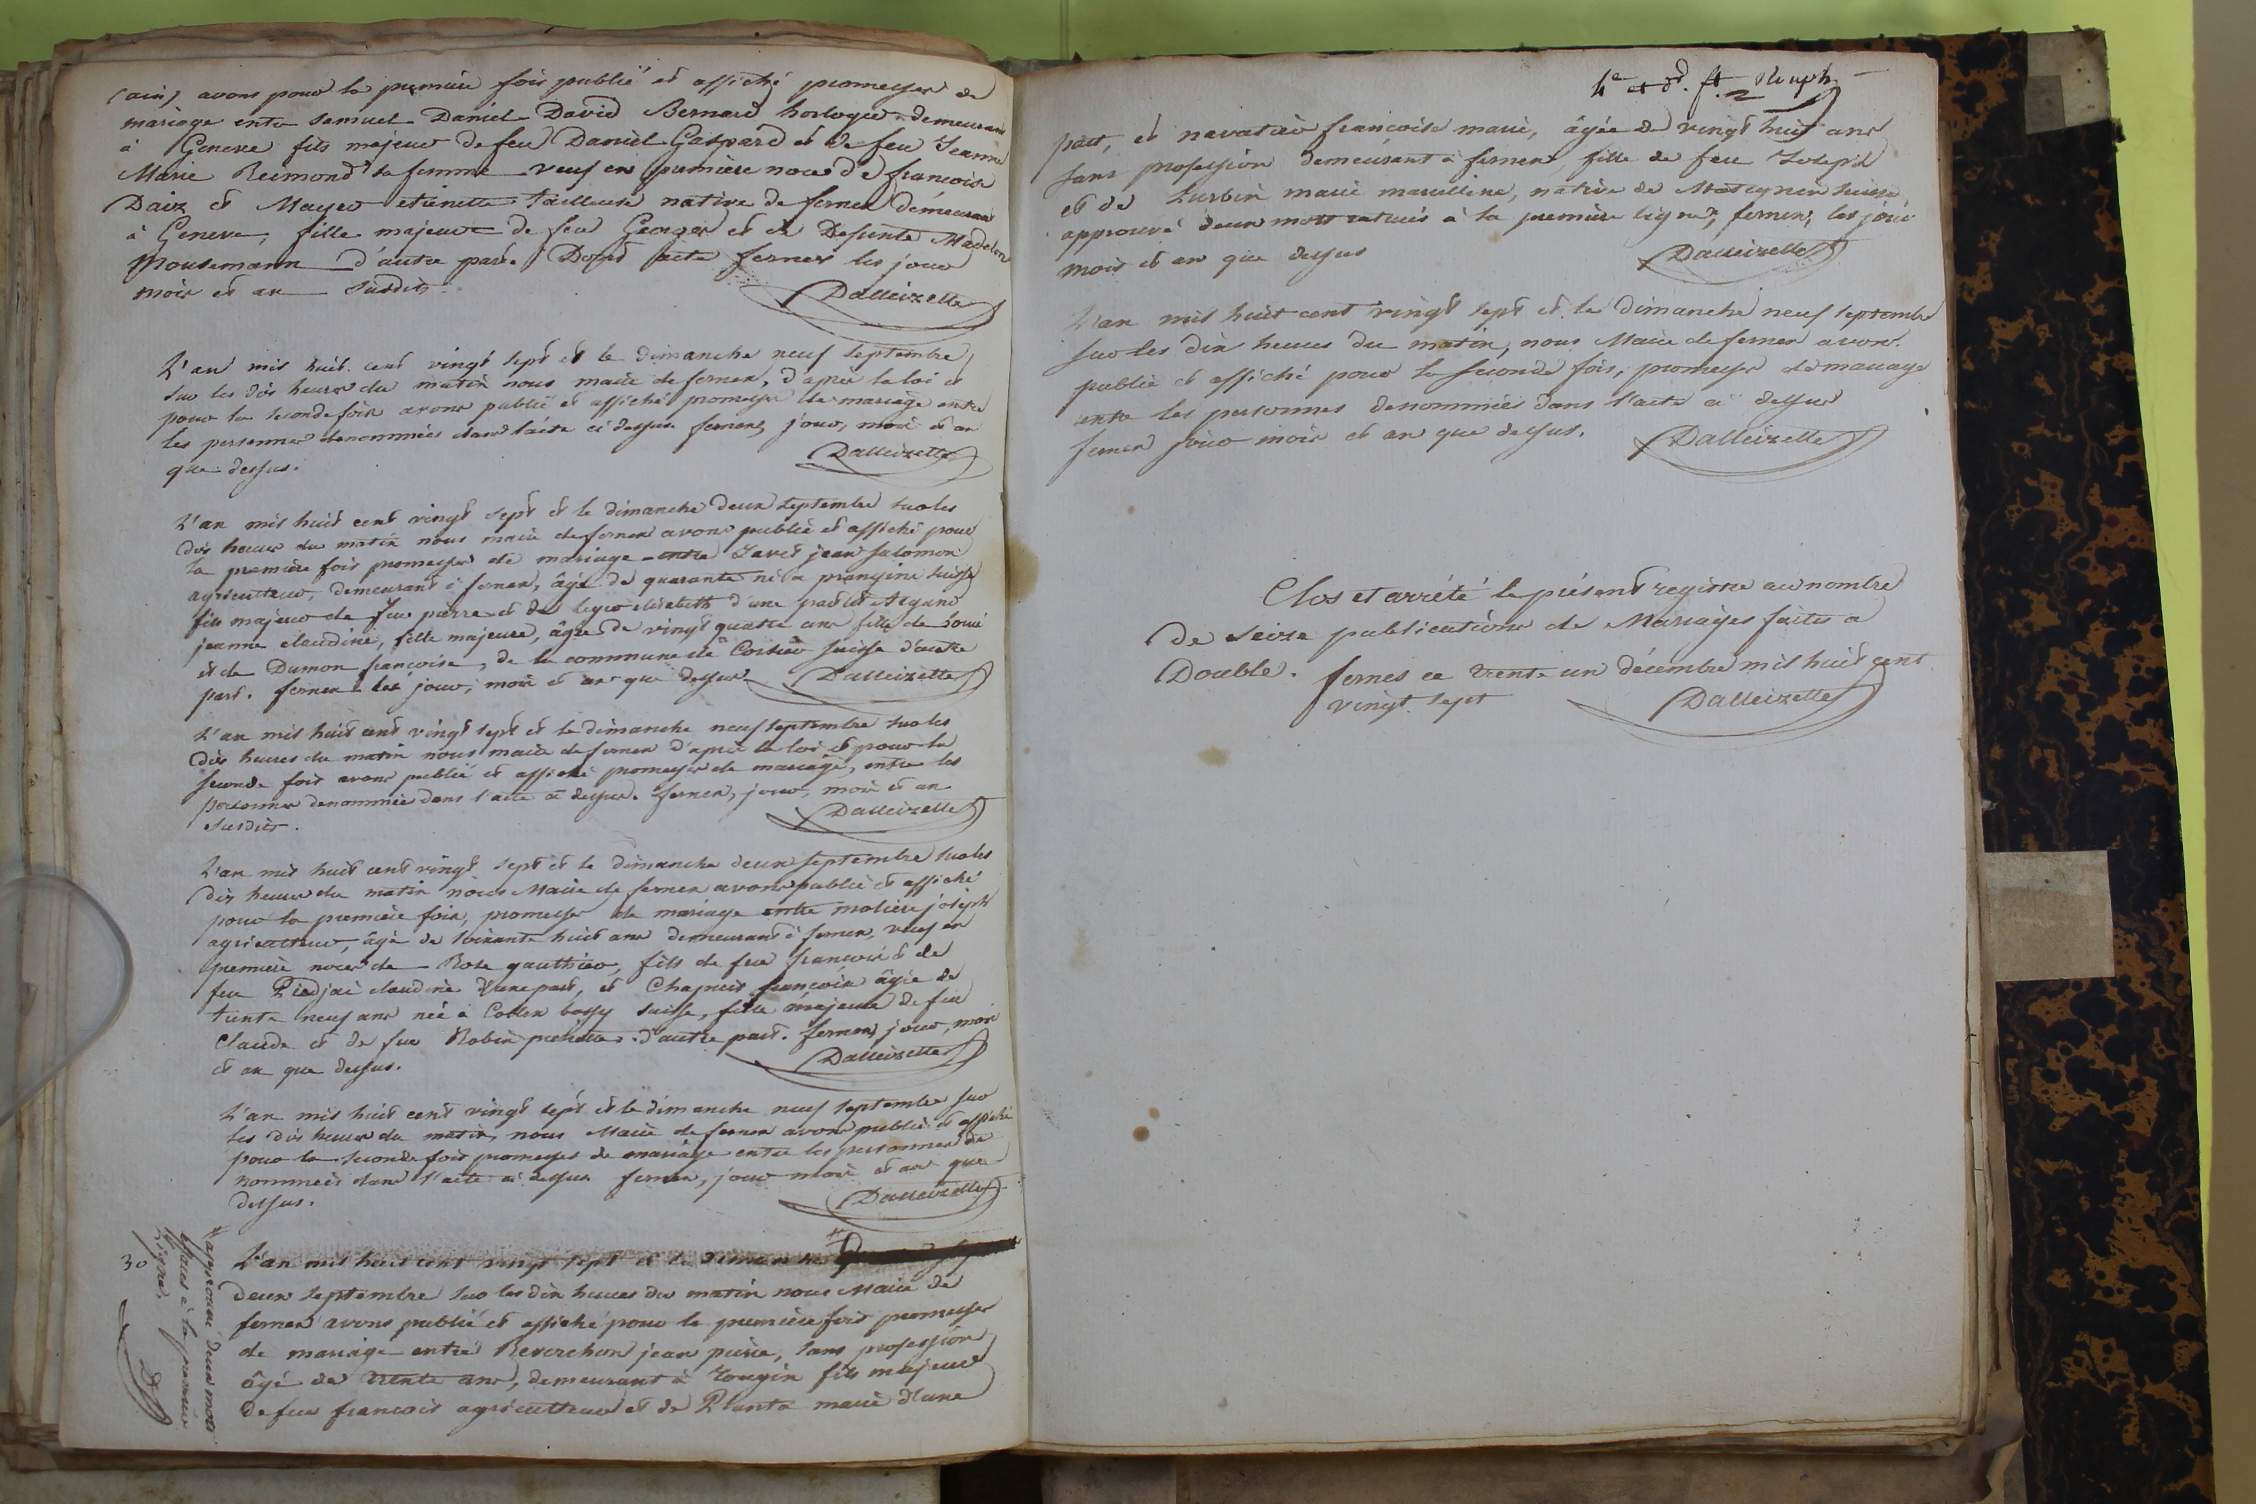 (ain) avons pour la premiere fois publié et affiché promesses de
mariage entre Samuel Daniel David Bernard horloger demeurant
à Geneve fils majeur de feu Daniel Gaspard et de feu Jeanne
Marie Reimond sa femme veuf en premiere noces de francoise
et Mayer etienette tailleuse native de fernex demeurant
à Geneve, fille majeure de feu Georges et de Defunte Madelon
Mousemann d'autre part. Dont acte fernex les jour
mois et an susdits.
Dalleizette
L'an mil huit cent vingt sept et le dimanche neuf septembre
sur les dix heures du matin nous maire de fernex, d'après la loi et
pour la seconde fois avons publié et affiché promesses de mariage entre
les personnes denommées dans l'acte ci dessus fernex, jour, mois et an
que dessus.
Dalleizette
L'an mil huit cent vingt sept et le dimanche deux septembre sur les
dix heures du matin nous maire de fernex avons publié et affiché pour
la première fois promesses de mariage entre jean salomon
agriculteur, demeurant à fernex, âgé de quarante né a prangine suisse
fils majeur de feu pierre et de elisabeth d'une part et
jeanne claudine, fille majeure, âgée de vingt quatre ans fille de Louis
et de Dumon francoise, de la commune de suisse d'autre
part. fernex les jour, mois et an que dessus
Dalleizette
L'an mil huit cent vingt sept et le dimanche neuf septembre sur les
dix heures du matin nous maire de fernex d'après la loi et pour la
seconde fois avons publié et affiché promesses de mariage, entre les
personnes denommées dans l'acte ci dessus. fernex, jour, mois et an
susdits.
Dalleizette
L'an mil huit cent vingt sept et le dimanche deux septembre sur les
dix heures du matin nous Maire de fernex avons publié et affiché
pour la premiere fois, promesses de mariage entre moliere joseph
agriculteur, âgé de soixante huit ans demeurant à fernex, veuf en
premiere noces de Rose gauthier, fils de feu francois et de
feu claudine d'une part, et Chapuis francoise âgée de
trente neuf ans née à bossy suisse, fille majeure de feu
Claude et de feu Robin d'autre part. fernex jour, mois
et an que dessus.
Dalleizette
L'an mil huit cent vingt sept et le dimanche neuf septembre sur
les dix heures du matin, nous Maire de fernex avons publié et affiché
pour la seconde fois promesses de mariage entre les personnes de
nommées dans l'acte ci dessus fernex, jour mois et an que
dessus.
Dalleizette
30
approuvé deux mots
éffacés à la premiere
ligne.
L'an mil huit cent vingt sept et le dimanche
deux septembre sur les dix heures du matin nous Maire de
fernex avons publié et affiché pour la premiere fois promesses
de mariage entre Reverchon jean pierre, sans profession
âgé de trente ans, demeurant à Tougin fils majeur
de feu francois agriculteur et de Planta marie d'une
part, et navatier francoise marie, âgée de vingt huit ans
sans profession demeurant à fernex, fille de feu Joseph
et de marie marcelline, native de suisse
approuvé deux mots raturés à la premiere ligne, fernex, les jour
mois et an que dessus
Dalleizette
L'an mil huit cent vingt sept et le dimanche neuf septembre
sur les dix heures du matin, nous Maire de fernex avons
publié et affiché pour la seconde fois, promesses de mariage
entre les personnes denommées dans l'acte ci dessus
fernex jour mois et an que dessus.
Dalleizette
Clos et arrété le présent registre au nombre
de seize publications de Mariages faites a
Double. fernex ce trente un décembre mil huit cent
vingt sept
Dalleizette